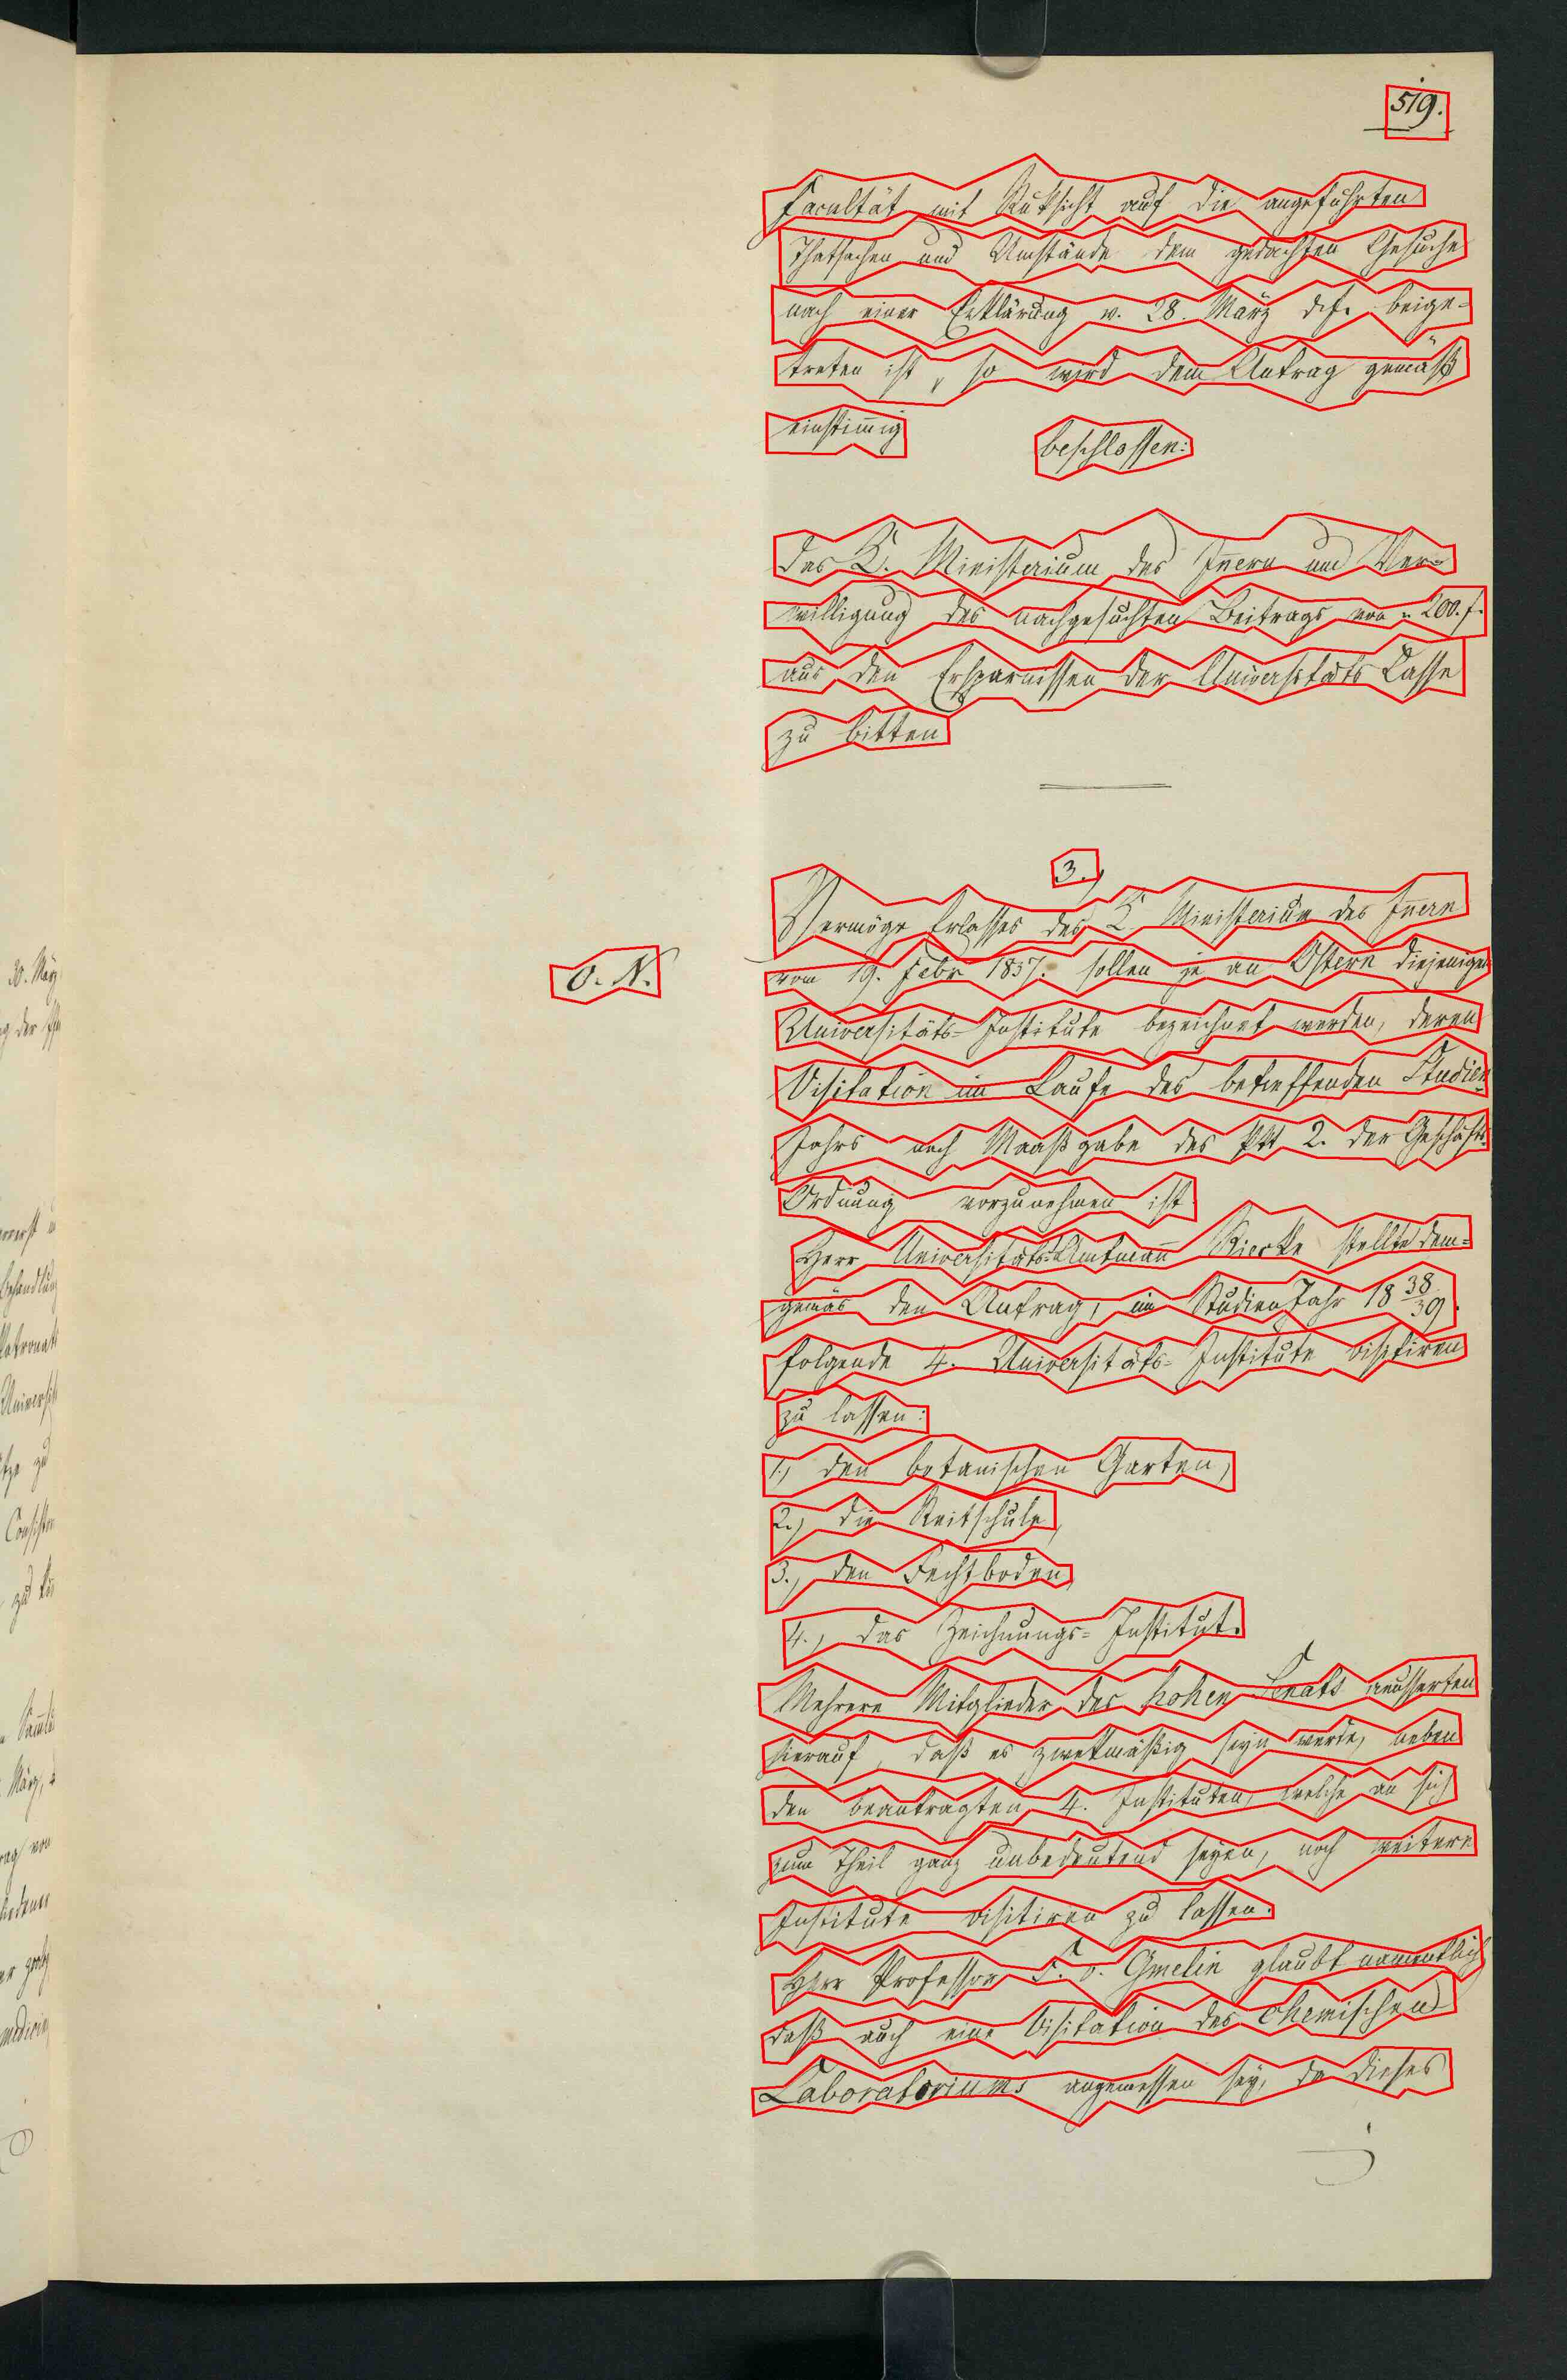 519.
Facultät mit Rüksicht auf die angeführten
Thatsachen und Umstände dem gedachten Gesuche
nach einer Erklärung v. 28. März d. J. beige-
treten ist, so wird dem Antrag gemäß
einstimig
beschlossen:
das K. Ministerium des Iñern um Ver-
willigung des nachgesuchten Beitrags von „ 200. f.
aus den Ersparnissen der Universitäts Casse
zu bitten
3.,
Vermöge Erlasses des K. Ministerium des Iñern
O. N.
vom 19. Febr 1837. sollen je an Ostern diejenigen
Universitäts-Institute bezeichnet werden, deren
Visitation im Laufe des betreffenden Studien
Jahrs nach Maaßgabe des Pkt 2. der Geschäfts-
Ordnung vorzunehmen ist.
Herr Universitäts-Amtmañ Riecke stellte dem-
gemäs den Antrag, im Studien Jahr 18 38/39.
folgende 4. Universitäts-Institute visitiren
zu lassen:
1., den botanischen Garten,
2., die Reitschule,
3., den Fechtboden,
4., das Zeichnungs-Institut.
Mehrere Mitglieder des hohen Senats äusserten
hierauf, daß es zwekmäßig seyn werde, neben
den beantragten 4. Instituten, welche an sich
zum Theil ganz unbedeutend seyen, noch weitere
Institute visitiren zu lassen.
Herr Professor F. v. Gmelin glaubt namentlich
daß auch eine Visitation des chemischen
Laboratoriums angemessen sey, da dieses